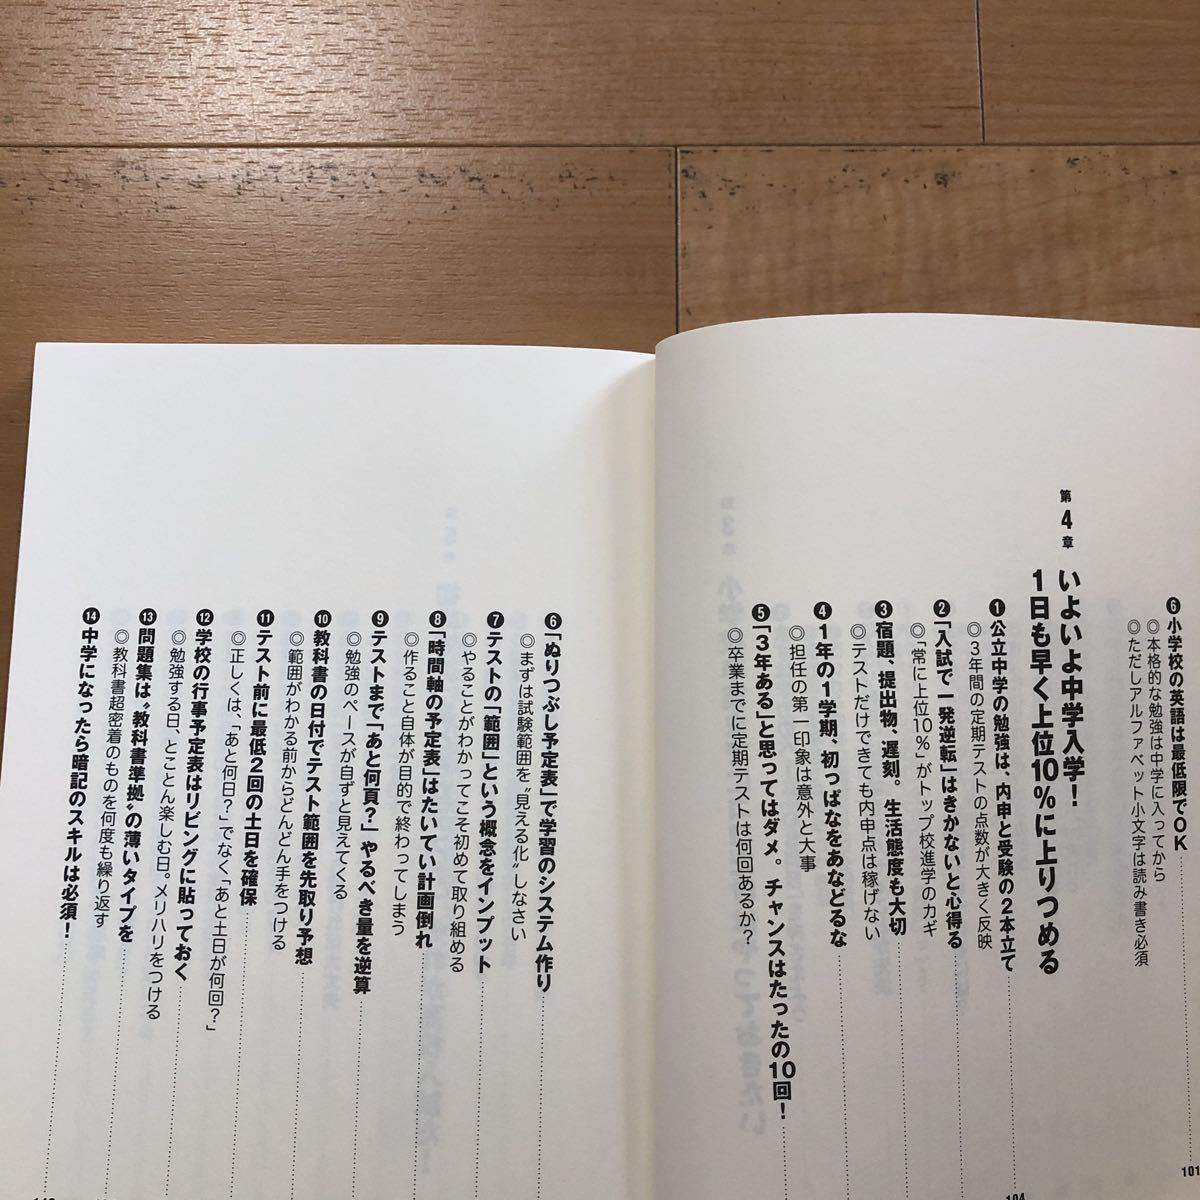 ❻小学校の英語は最低限でOK
◎本格的な勉強は中学に入ってから
◎ただしアルファベット小文字は読み書き必須
101
第4章
いよいよ中学入学!
1日も早く上位10%に上りつめる
❶公立中学の勉強は、内申と受験の2本立て
◎3年間の定期テストの点数が大きく反映
104
❷「入試で一発逆転」はきかないと心得る
◎「常に上位10%」がトップ校進学のカギ
❸宿題、提出物、遅刻。生活態度も大切
◎テストだけできても内申点は稼げない
❹1年の1学期、初っぱなをあなどるな
◎担任の第一印象は意外と大事
❺「3年ある」と思ってはダメ。チャンスはたったの10回!
◎卒業までに定期テストは何回あるか?
❻「ぬりつぶし予定表」で学習のシステム作り
◎まずは試験範囲を〝見える化〟しなさい
❼テストの「範囲」という概念をインプット
◎やることがわかってこそ初めて取り組める
❽「時間軸の予定表」はたいてい計画倒れ
◎作ること自体が目的で終わってしまう
❾テストまで「あと何頁?」やるべき量を逆算
◎勉強のペースが自ずと見えてくる
❿教科書の日付でテスト範囲を先取り予想
◎範囲がわかる前からどんどん手をつける
⓫テスト前に最低2回の土日を確保
◎正しくは、「あと何日?」でなく「あと土日が何回?」
⓬学校の行事予定表はリビングに貼っておく
◎勉強する日、とことん楽しむ日。メリハリをつける
⓭問題集は〝教科書準拠〟の薄いタイプを
◎教科書超密着のものを何度も繰り返す
⓮中学になったら暗記のスキルは必須!